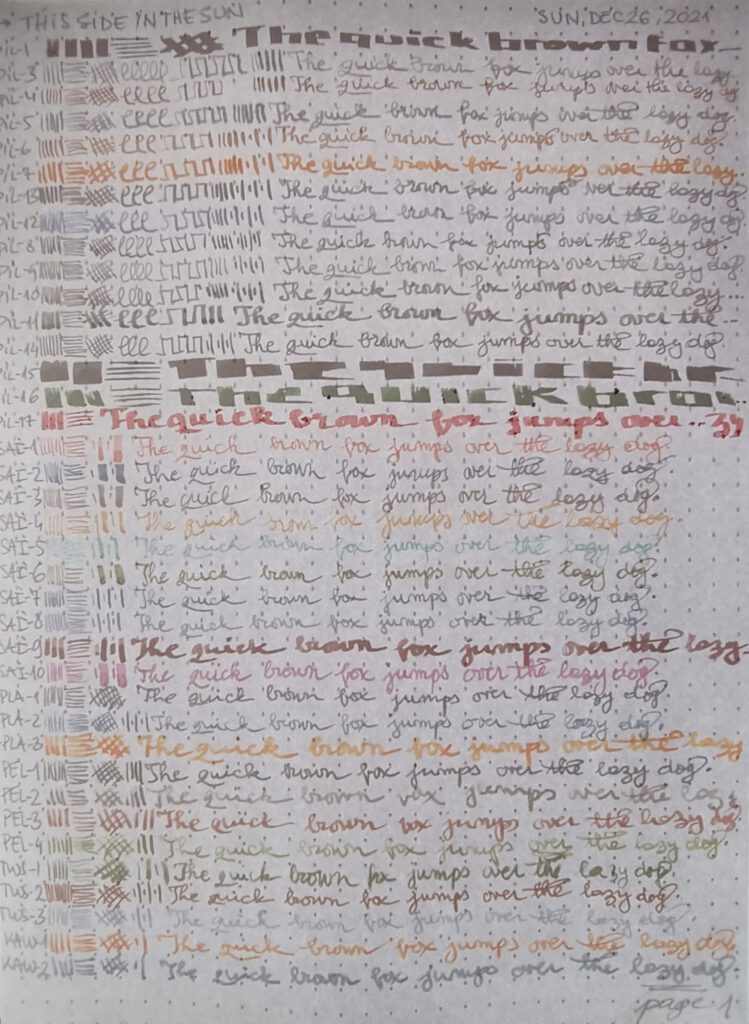 THIS SIDE IN THE SUN SUN, DEC 26, 2021
PIL-1 The quick brown fox
PIL-3 The quick brown fox jumps over the lazy
PIL-4 The quick brown fox jumps over the lazy dog
PIL-5 The quick brown fox jumps over the lazy dog.
PIL-6 The quick brown fox jumps over the lazy dog.
PIL-7 The quick brown fox jumps over the lazy.
PIL-13 The quick brown fox jumps ver the lazy dog.
PIL-12 The quick brown fox jumps over the lazy dog.
PIL-8 The quick brown fox jumps over the lazy dog.
PIL-9 The quick brown fox jumps over the lazy dog.
PIL-10 The quick brown fox jumps over the lazy...
PIL-11 The quick brown fox jumps over the ...
PIL-14 The quick brown fox jumps over the lazy dog.
PIL-15 The quick br
PIL-16 The quick bro
PIL-17 The quick brown fox jumps over...
SAI-1 The quick brown fox jumps over the lazy dog.
SAI-2 The quick brown fox jumps over the lazy dog.
SAI-3 The quick brown fox jumps over the lazy dog.
SAI-4 The quick brown fox jumps over the lazy dog.
SAI-5 The quick brown fox jumps over the lazy dog.
SAI-6 The quick brown fox jumps over the lazy dog.
SAI-7 The quick brown fox jumps over the lazy dog.
SAI-8 The quick brown fox jumps over the lazy dog.
SAI-9 The quick brown fox jumps over the lazy.
SAI-10 The quick brown fox jumps over the lazy dog.
PLA-1 The quick brown fox jumps over the lazy dog.
PLA-2 The quick brown fox jumps over the lazy dog.
PLA-3 The quick brown fox jumps over the lazy
PEL-1 The quick brown fox jumps over the lazy dog.
PEL-2 The quick brown fox jumps over the lazy
PEL-3 The quick brown fox jumps over the lazy dog.
PEL-4 The quick brown fox jumps over the lazy dog.
TWS-1 The quick brown fox jumps over the lazy dog.
TWS-2 The quick brown fox jumps over the lazy dog.
TWS-3 The quick brown fox jumps over the lazy dog.
KAW-1 The quick brown fox jumps over the lazy dog.
KAW-2 The quick brown fox jumps over the lazy dog.
page 1